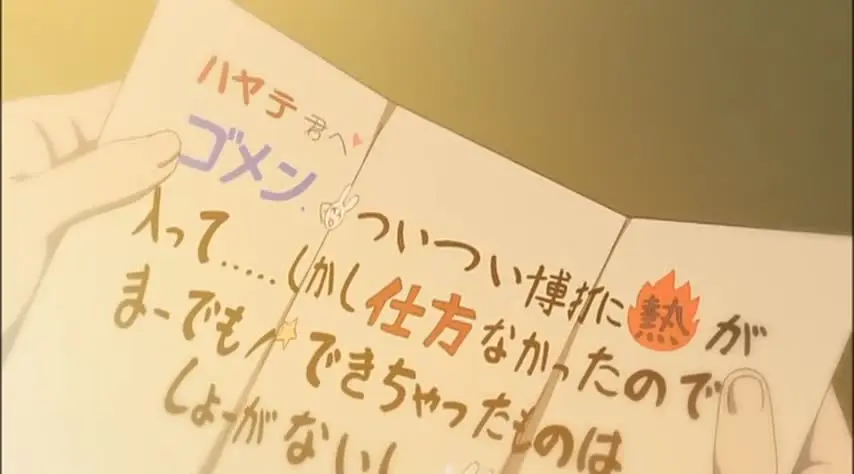 ハヤテ君へ
ゴメン.ついつい博打に熱が
入って.....しかし仕方なかったので
まーでもできちゃったものは
しょーがないし